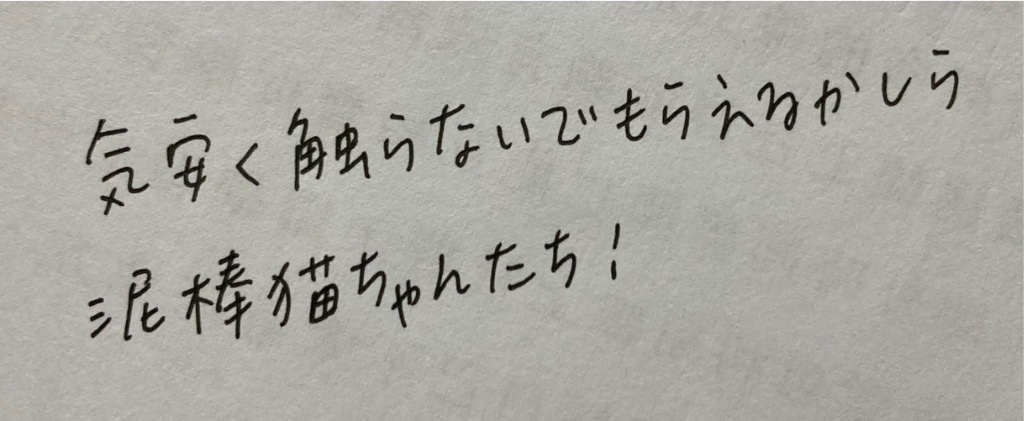 気安く触らないでもらえるかしら
泥棒猫ちゃんたち!